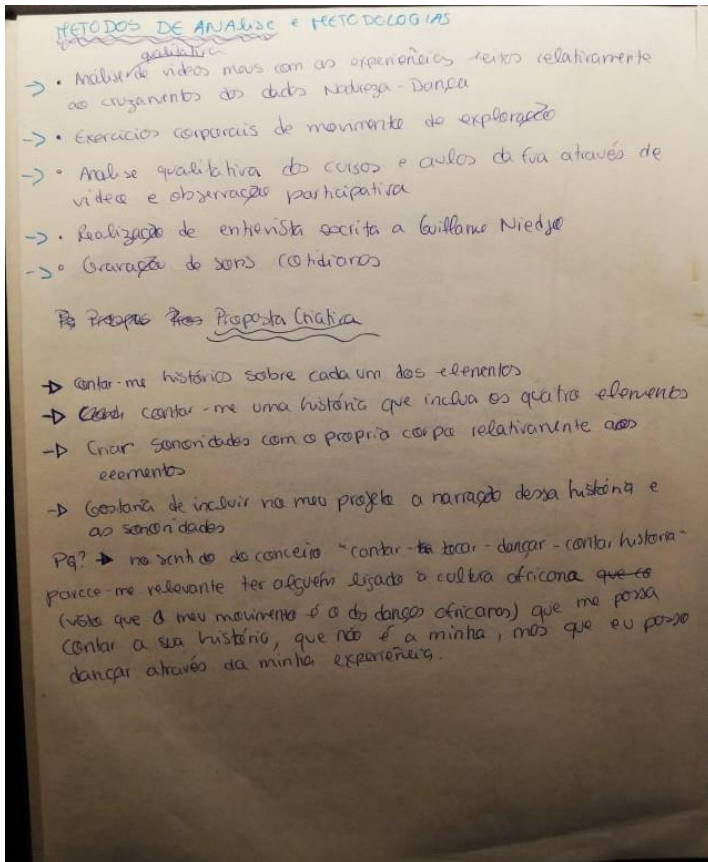 METODOS DE ANALISE e METODOLOGIAS
qualitativa
-> • Análise de videos meus com as experiências feitas relativamente
ao cruzamentos dos dados Natureza - Dança
-> • Exercicios corporais de movimento de exploração
-> • Analise qualitativa dos cursos e aulas da fua através de
video e observação participativa
-> • Realização de entrevista escrita a Guillame
-> • Gravação de sons cotidianos
Proposta Criativa
-> contar-me histórias sobre cada um dos elementos
-> contar-me uma história que inclua os quatro elementos
-> Criar sonoridades com o proprio corpo relativamente aos
elementos
-> Gostaria de incluir no meu projeto a narração dessa história e
as sonoridades
Pq? -> no sentido do conceito "cantar - tocar - dançar - contar historia"
parece-me relevante ter alguém ligado à cultura africana
(visto que o meu movimento é o das danças africanas) que me possa
contar a sua história, que não é a minha, mas que eu posso
dançar através da minha experiência.